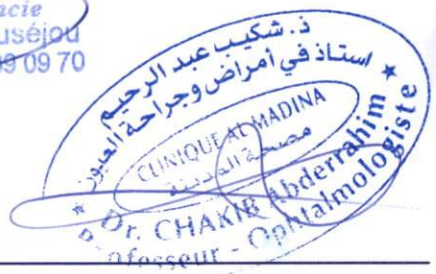 acie
uséjou
09 09 70
ذ. شكيب عبد الرحيم
استاذ في أمراض وجراحة العيون
CLINIQUE AL MADINA
مصحة المدينة
* Dr. CHAKIB Abderrahim *
Professeur - Ophtalmologiste